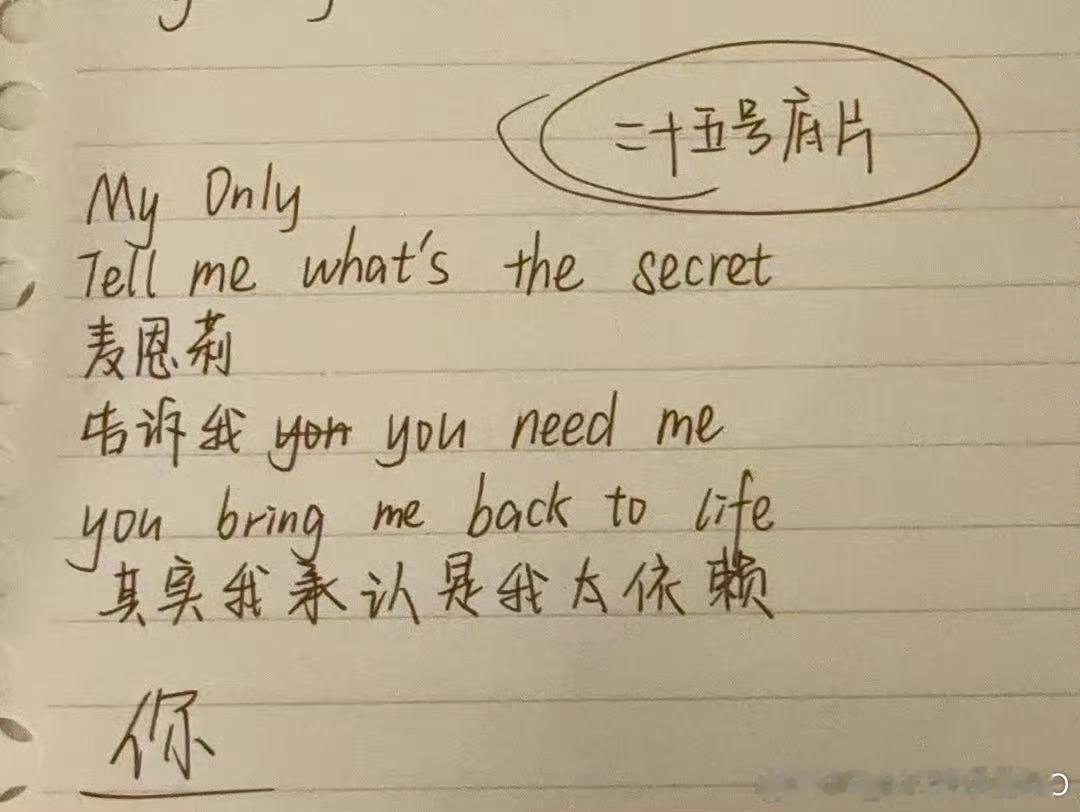 二十五号底片
My Only
Tell me what's the secret
麦恩莉
告诉我 you you need me
you bring me back to life
其实我承认是我太依赖
你